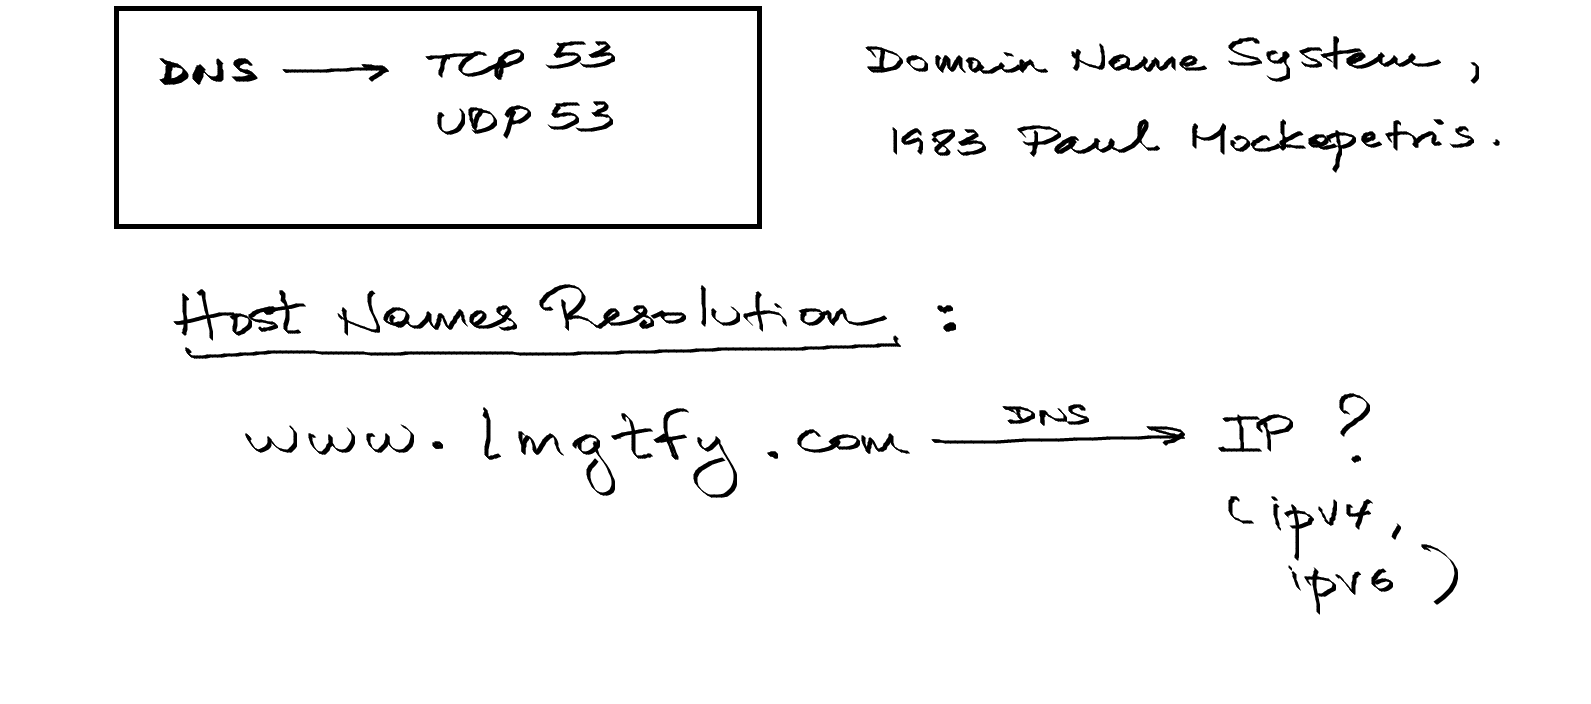 DNS → TCP 53
UDP 53
Domain Name System,
1983 Paul Mockapetris.
Host Names Resolution :
www.lmgtfy.com DNS → IP ?
(ipv4,
ipv6)